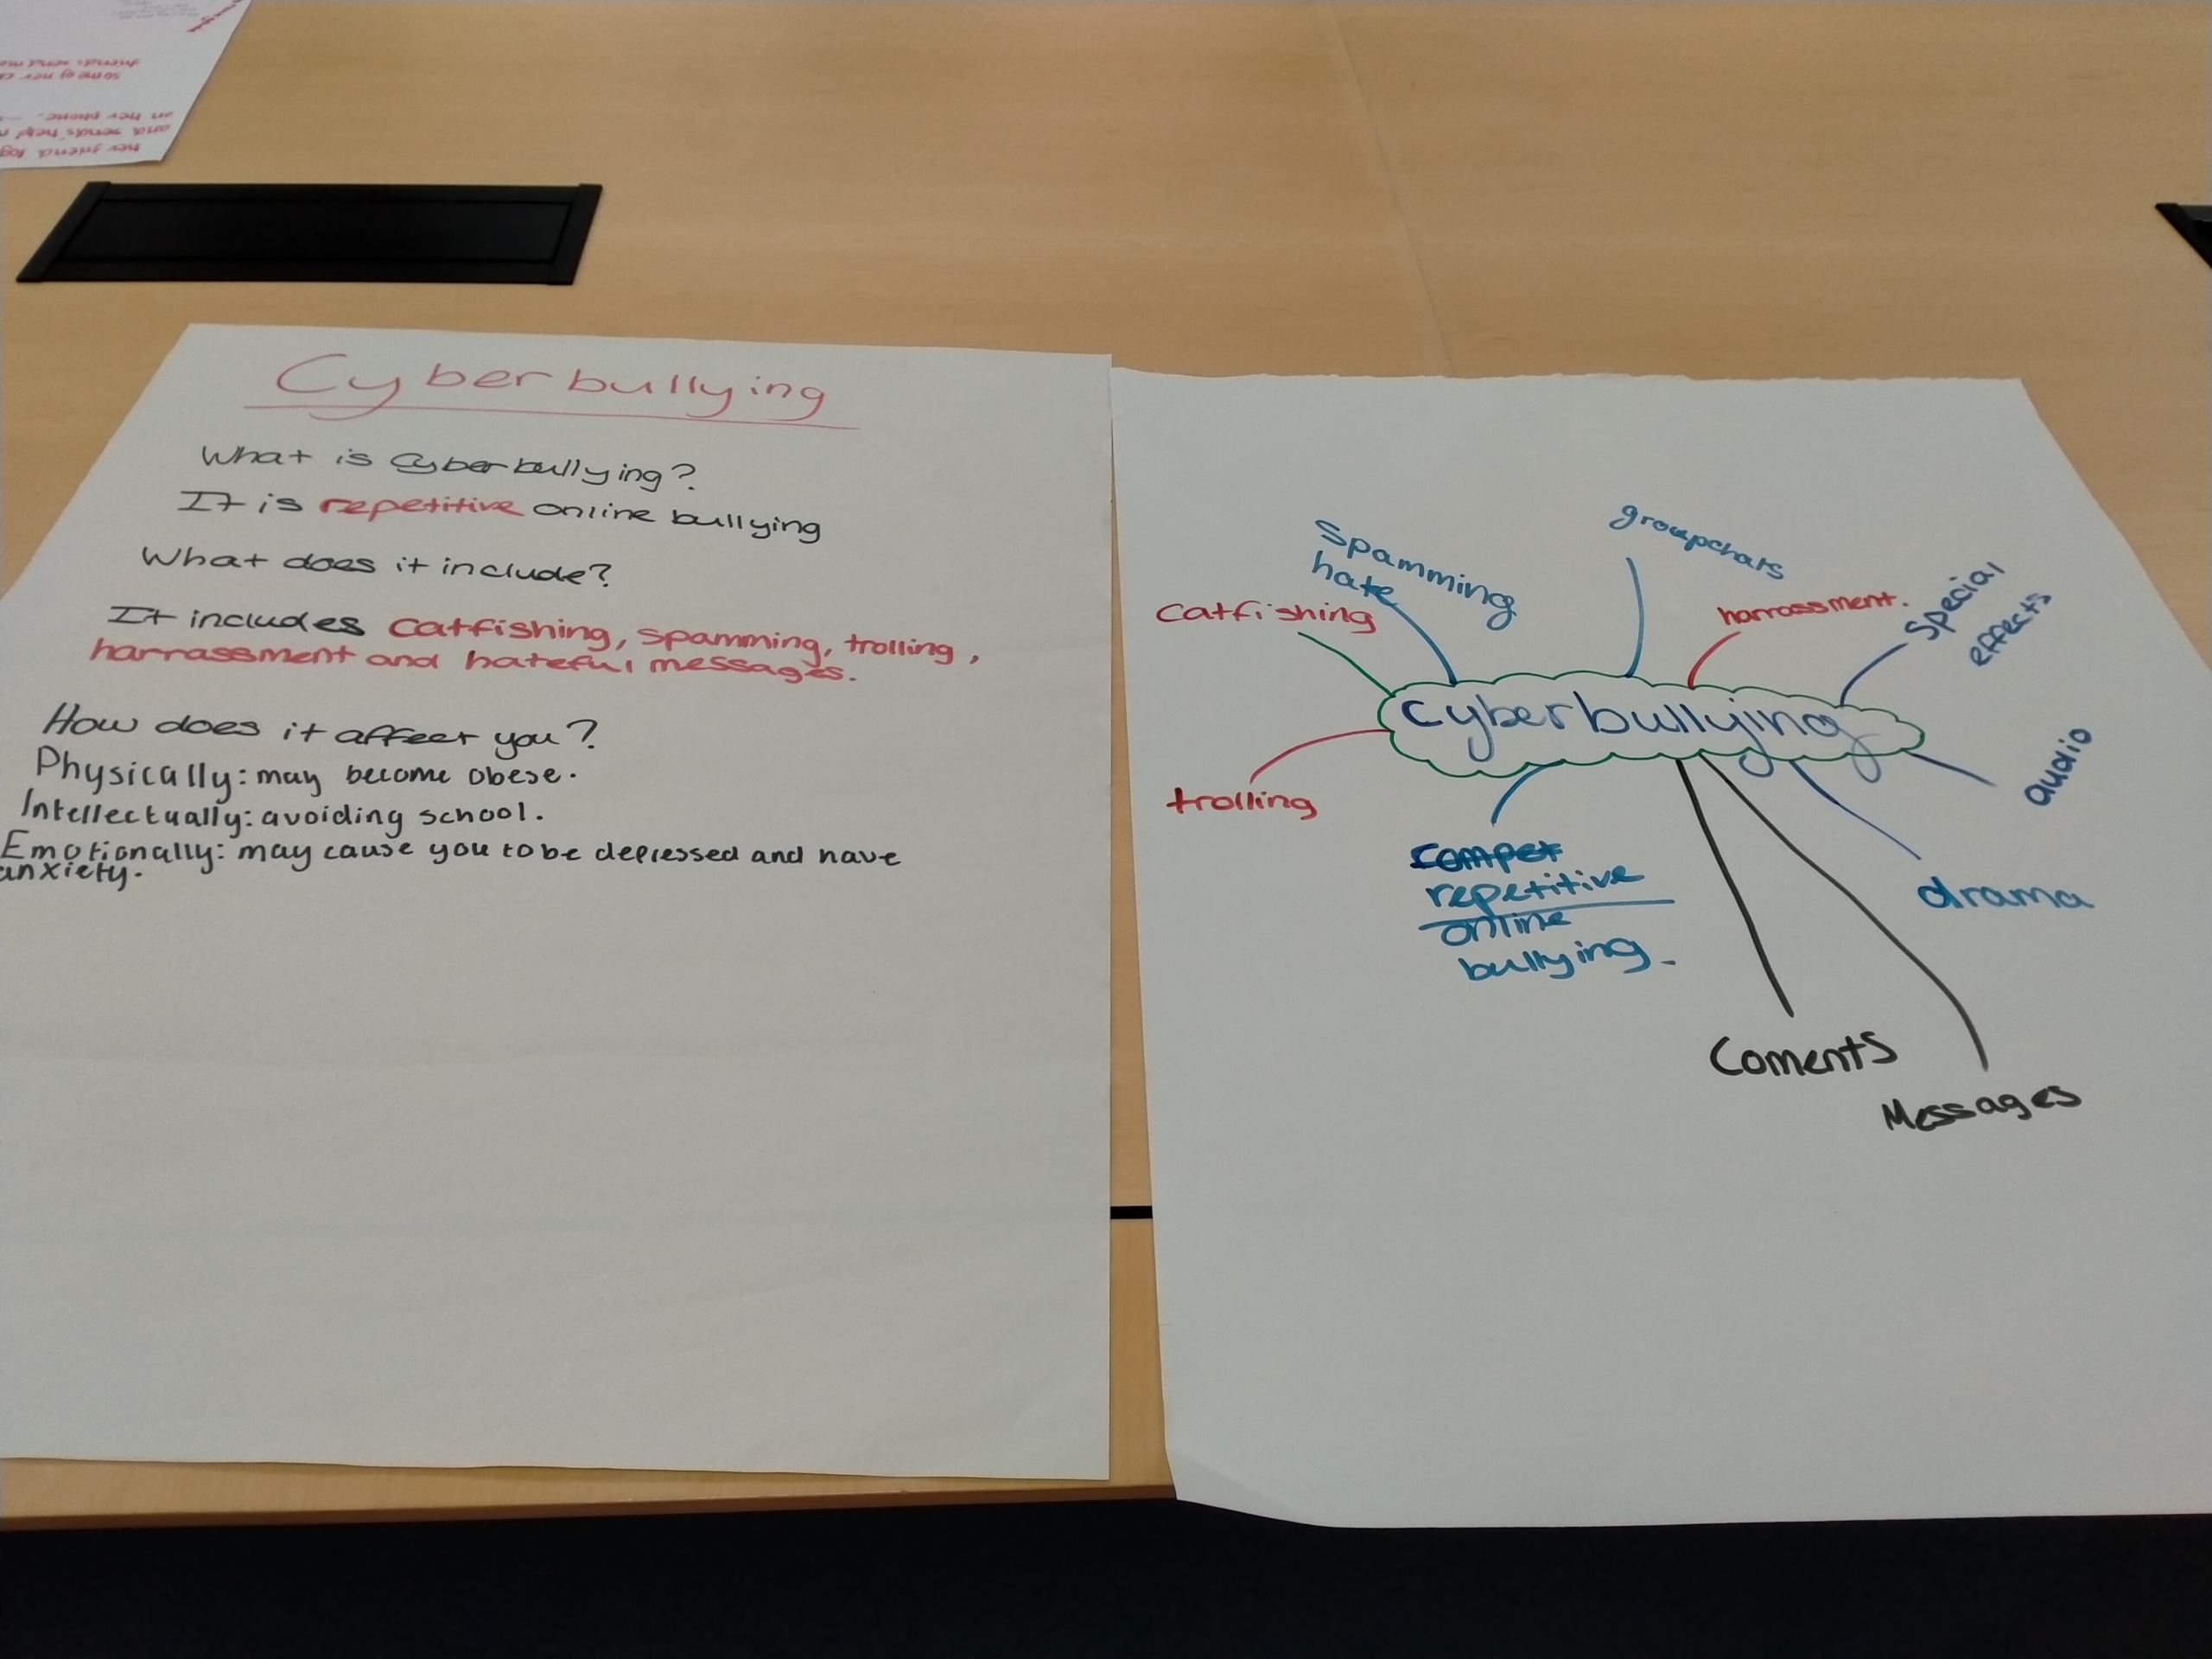 Cyberbullying
What is Cyberbullying?
It is repetitive online bullying
What does it include?
It includes Catfishing, spamming, trolling,
harrassment and hateful messages.
How does it affect you?
Physically: may become obese.
Intellectually: avoiding school.
Emotionally: may cause you to be depressed and have
anxiety.
Spamming
hate
groupchats
Catfishing
harrassment.
Special
effects
cyberbullying
audio
trolling
compet
repetitive
online
bullying.
drama
Coments
Messages
her friend log
and sends help
on her phone.
some of her
friends send me